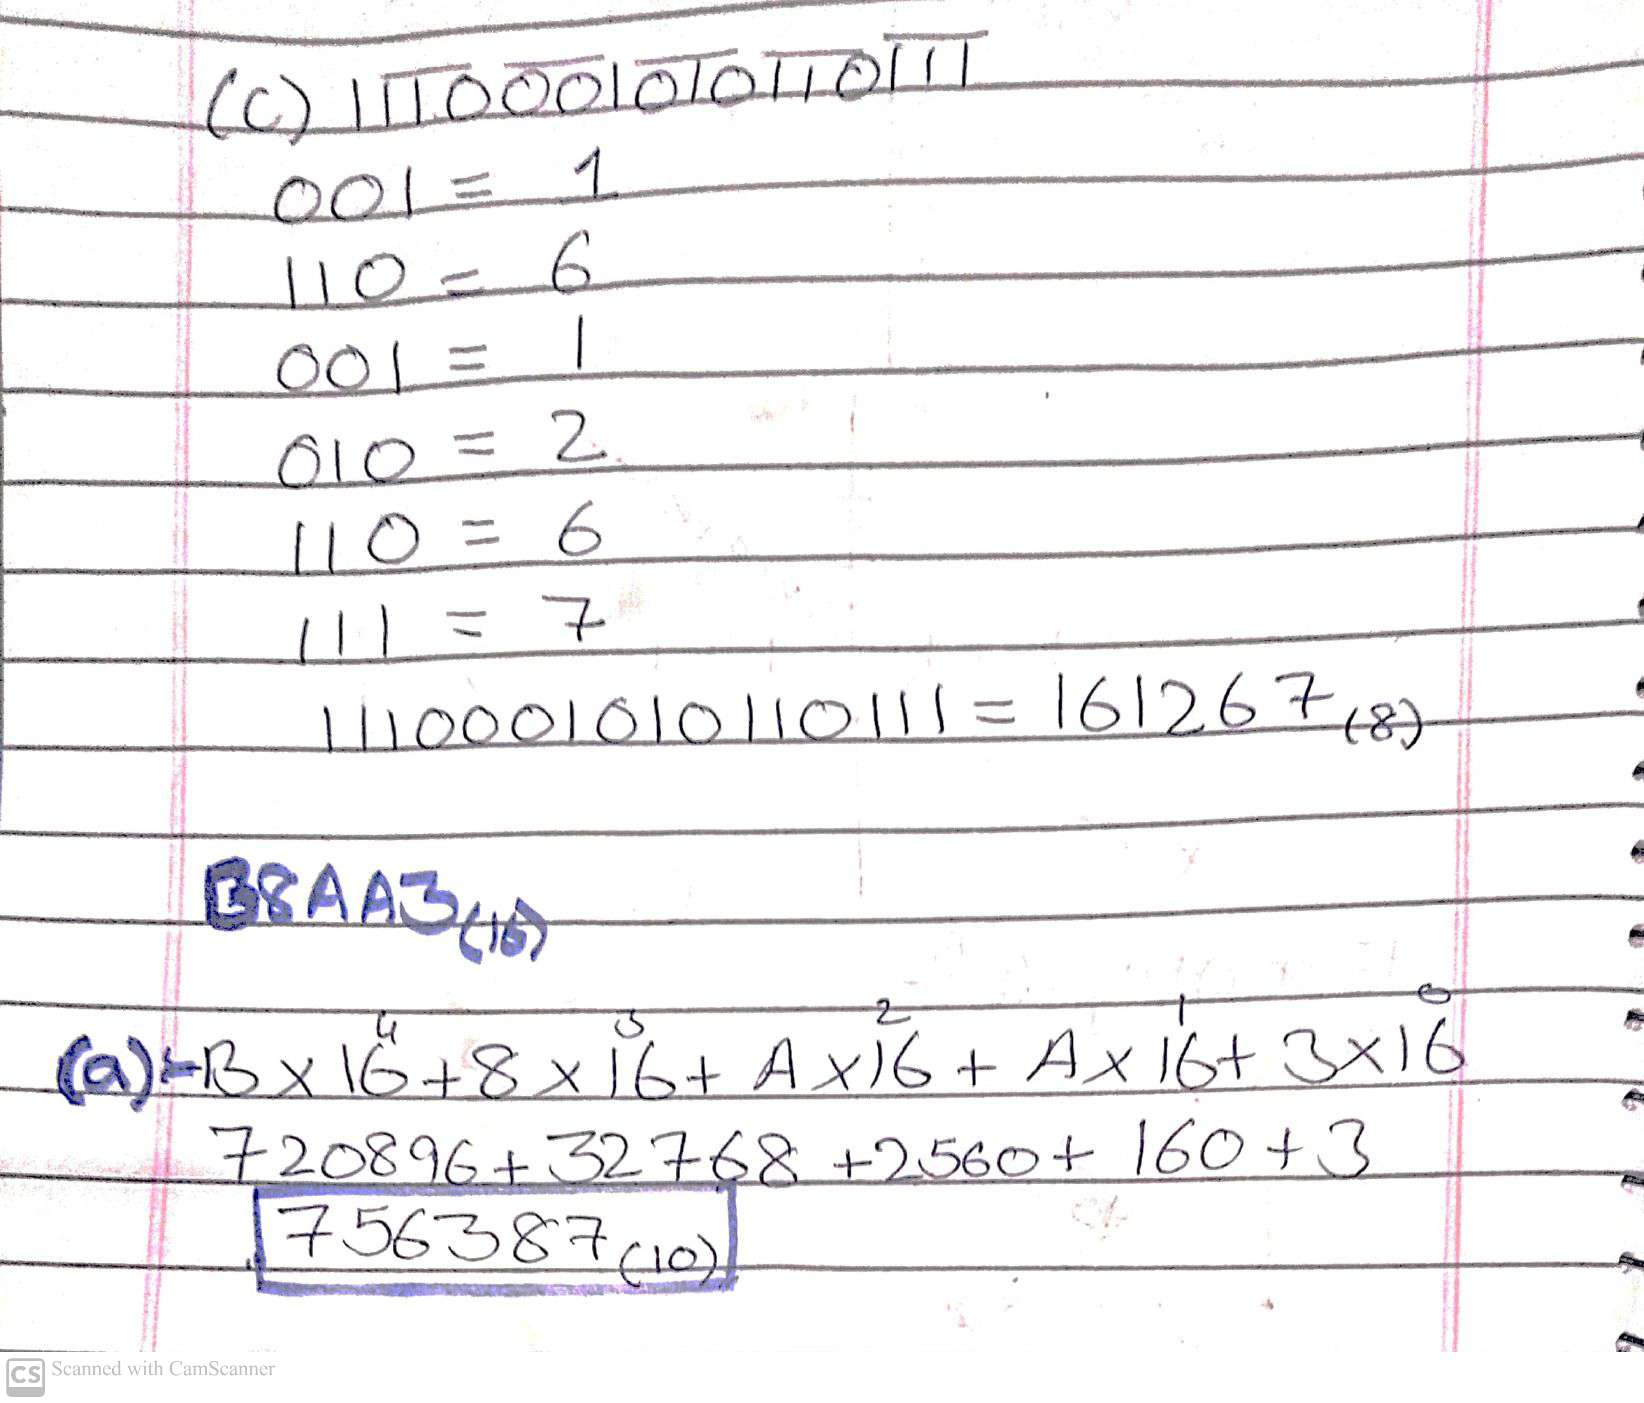 (C) 1110001010110111
001 = 1
110 = 6
001 = 1
010 = 2
110 = 6
111 = 7
1110001010110111 = 161267(8)
B8AA3(16)
(a):-B x 16⁴ + 8 x 16³ + A x 16² + A x 16¹ + 3 x 16⁰
720896 + 32768 + 2560 + 160 + 3
756387(10)
CS Scanned with CamScanner